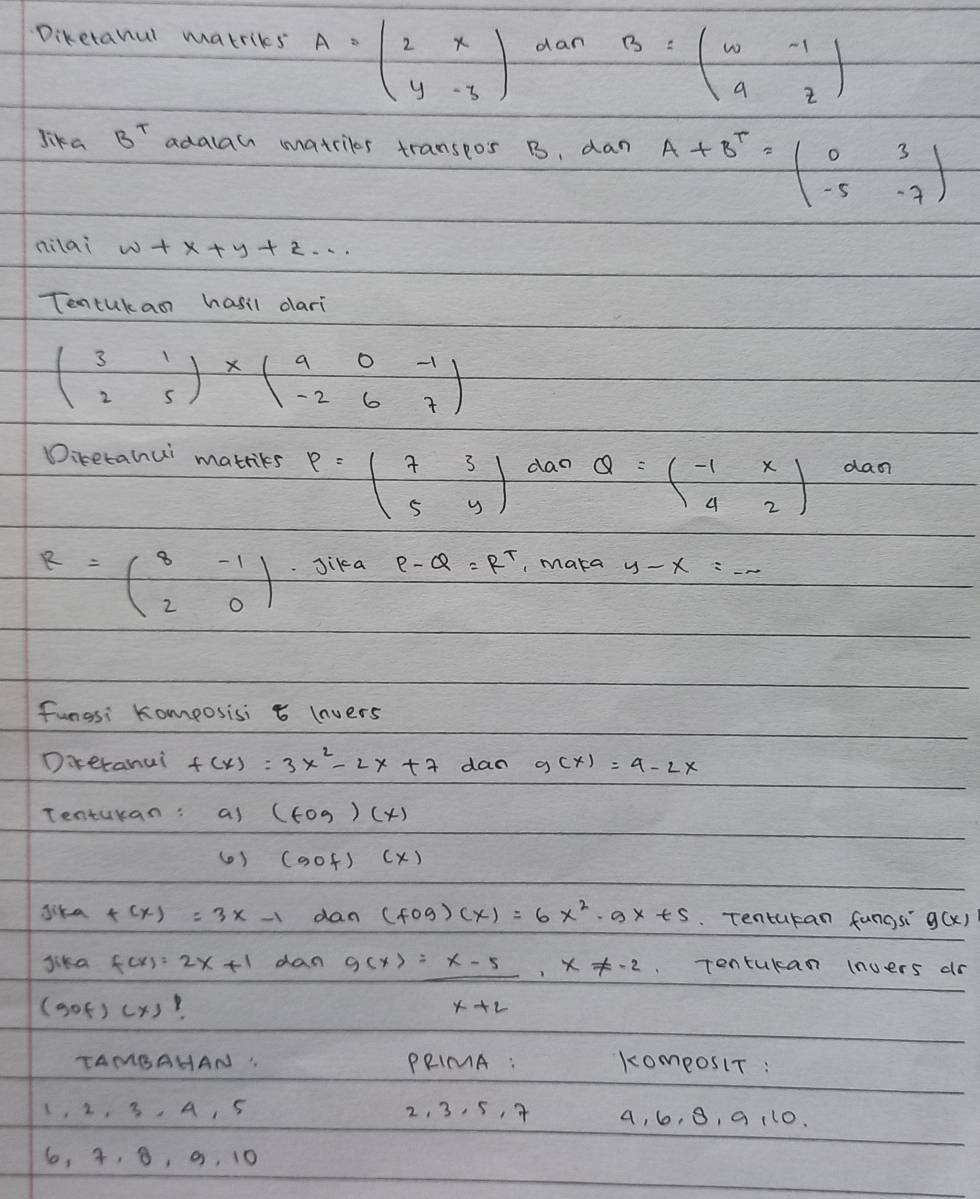 Diketahui matriks A = ( 2 x ) dan B = ( w -1 )
( y -3 ) ( 4 z )
Jika B^T adalah matriks transpos B, dan A + B^T = ( 0 3 )
( -5 -7 )
nilai w + x + y + z ...
Tentukan hasil dari
( 3 1 ) x ( 4 0 -1 )
( 2 5 ) ( -2 6 7 )
Diketahui matriks P = ( 7 3 ) dan Q = ( -1 x ) dan
( 5 y ) ( 4 2 )
R = ( 8 -1 ) . Jika P - Q = R^T, maka y - x = ...
( 2 0 )
Fungsi Komposisi & Invers
Diketahui f(x) = 3x² - 2x + 7 dan g(x) = 4 - 2x
Tentukan : a) (fog) (x)
b) (gof) (x)
Jika f(x) = 3x - 1 dan (fog)(x) = 6x² - 9x + 5. Tentukan fungsi g(x)!
Jika f(x) = 2x + 1 dan g(x) = x - 5 , x ≠ -2. Tentukan invers dr
(gof) (x)! x + 2
TAMBAHAN : PRIMA : KOMPOSIT :
1, 2, 3, 4, 5 2, 3, 5, 7 4, 6, 8, 9, 10.
6, 7, 8, 9, 10